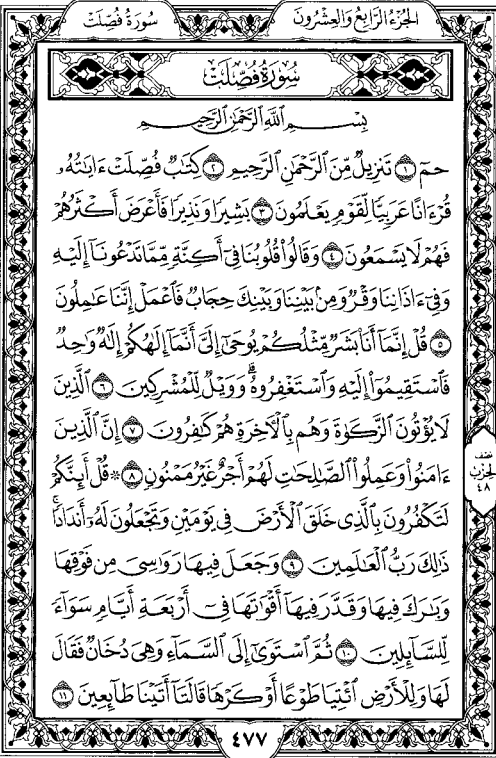 الجزء الرابع والعشرون
سورة فصلت
سُورَةُ فُصِّلَتْ
بِسْمِ ٱللَّهِ ٱلرَّحْمَٰنِ ٱلرَّحِيمِ
حمٓ ١ تَنزِيلٌ مِّنَ ٱلرَّحْمَٰنِ ٱلرَّحِيمِ ٢ كِتَٰبٌ فُصِّلَتْ ءَايَٰتُهُۥ
قُرْءَانًا عَرَبِيًّا لِّقَوْمٍ يَعْلَمُونَ ٣ بَشِيرًا وَنَذِيرًا فَأَعْرَضَ أَكْثَرُهُمْ
فَهُمْ لَا يَسْمَعُونَ ٤ وَقَالُوا۟ قُلُوبُنَا فِىٓ أَكِنَّةٍ مِّمَّا تَدْعُونَآ إِلَيْهِ
وَفِىٓ ءَاذَانِنَا وَقْرٌ وَمِنۢ بَيْنِنَا وَبَيْنِكَ حِجَابٌ فَٱعْمَلْ إِنَّنَا عَٰمِلُونَ
٥ قُلْ إِنَّمَآ أَنَا۠ بَشَرٌ مِّثْلُكُمْ يُوحَىٰٓ إِلَىَّ أَنَّمَآ إِلَٰهُكُمْ إِلَٰهٌ وَٰحِدٌ
فَٱسْتَقِيمُوٓا۟ إِلَيْهِ وَٱسْتَغْفِرُوهُ ۗ وَوَيْلٌ لِّلْمُشْرِكِينَ ٦ ٱلَّذِينَ
لَا يُؤْتُونَ ٱلزَّكَوٰةَ وَهُم بِٱلْءَاخِرَةِ هُمْ كَٰفِرُونَ ٧ إِنَّ ٱلَّذِينَ
ءَامَنُوا۟ وَعَمِلُوا۟ ٱلصَّٰلِحَٰتِ لَهُمْ أَجْرٌ غَيْرُ مَمْنُونٍ ٨ ۞ قُلْ أَئِنَّكُمْ
لَتَكْفُرُونَ بِٱلَّذِى خَلَقَ ٱلْأَرْضَ فِى يَوْمَيْنِ وَتَجْعَلُونَ لَهُۥٓ أَندَادًا ۚ
ذَٰلِكَ رَبُّ ٱلْعَٰلَمِينَ ٩ وَجَعَلَ فِيهَا رَوَٰسِىَ مِن فَوْقِهَا
وَبَٰرَكَ فِيهَا وَقَدَّرَ فِيهَآ أَقْوَٰتَهَا فِىٓ أَرْبَعَةِ أَيَّامٍ سَوَآءً
لِّلسَّآئِلِينَ ١٠ ثُمَّ ٱسْتَوَىٰٓ إِلَى ٱلسَّمَآءِ وَهِىَ دُخَانٌ فَقَالَ
لَهَا وَلِلْأَرْضِ ٱئْتِيَا طَوْعًا أَوْ كَرْهًا قَالَتَآ أَتَيْنَا طَآئِعِينَ ١١
نصف
الحزب
٤٨
٤٧٧